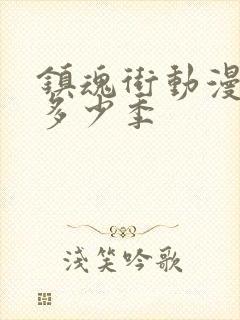 鎮魂街動漫
多少季
淺笑吟歌